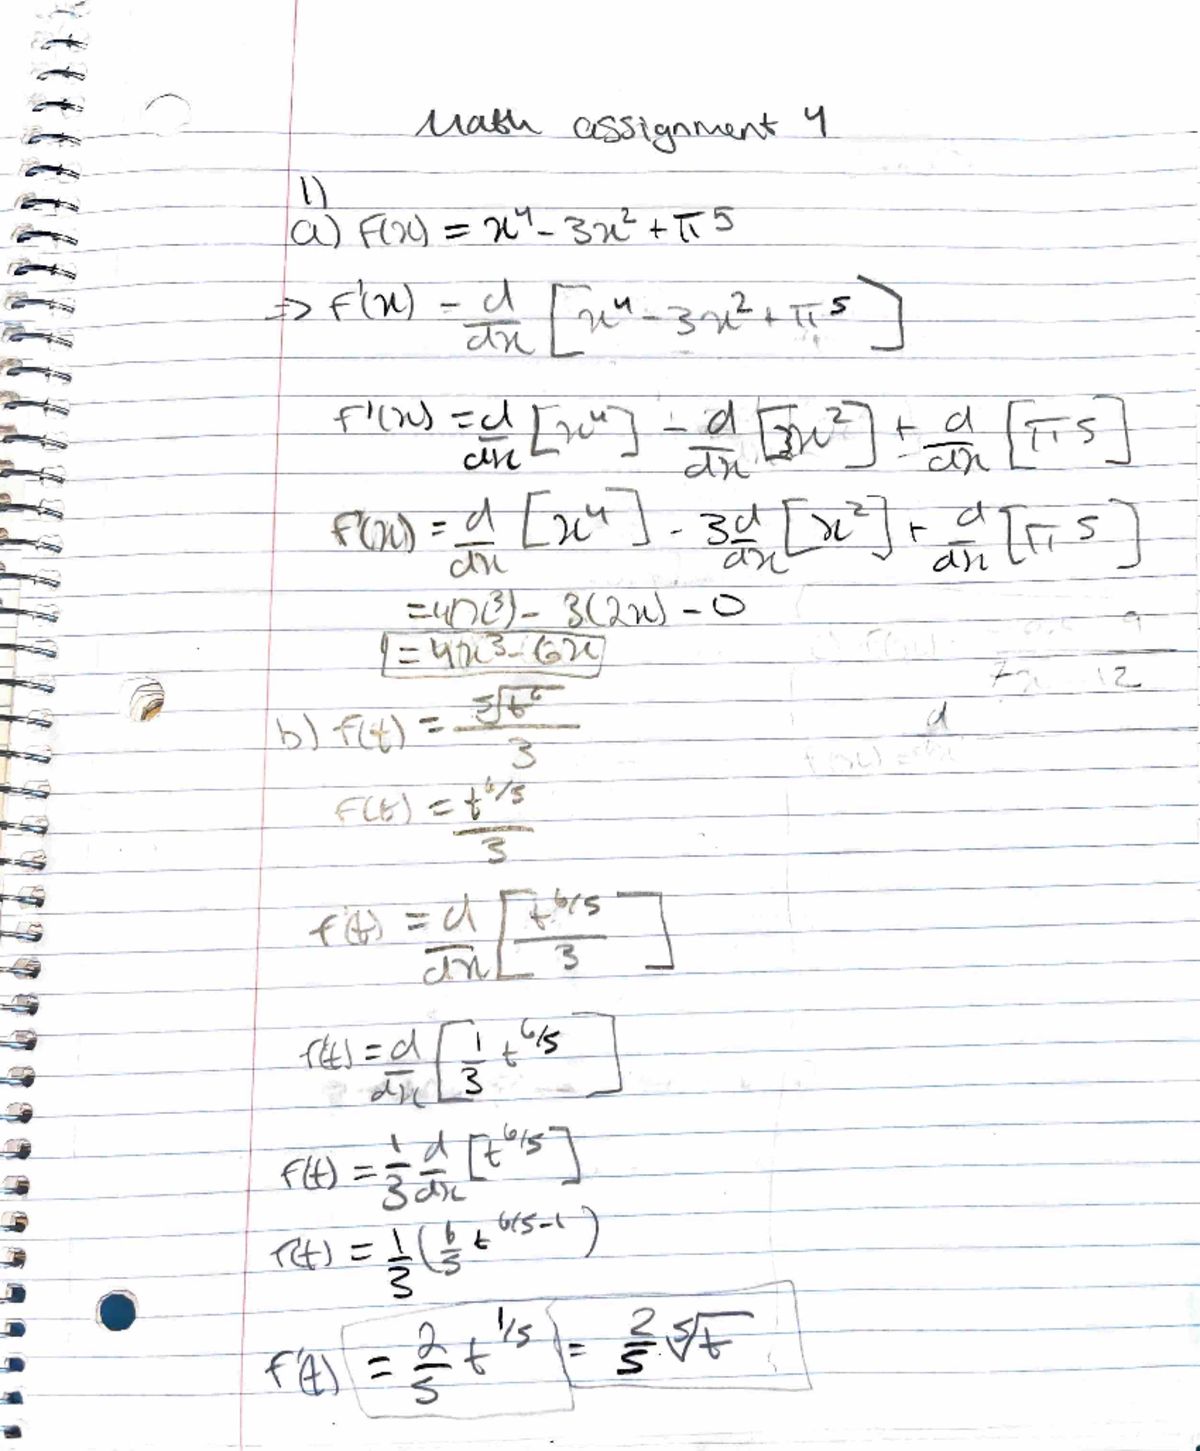 Math assignment 4
1)
a) f(x) = x⁴ - 3x² + π⁵
⇒ f'(x) = d/dx [x⁴ - 3x² + π⁵]
f'(x) = d/dx [x⁴] - d/dx [3x²] + d/dx [π⁵]
f'(x) = d/dx [x⁴] - 3 d/dx [x²] + d/dx [π⁵]
= 4(x³) - 3(2x) - 0
= 4x³ - 6x
b) f(t) = ⁵√t⁶ / 3
f(t) = t^6/5 / 3
f'(t) = d/dx [t^6/5 / 3]
f'(t) = d/dx [1/3 t^6/5]
f(t) = 1/3 d/dx [t^6/5]
f'(t) = 1/3 (6/5 t^6/5-1)
f'(t) = 2/5 t^1/5 = 2/5 ⁵√t